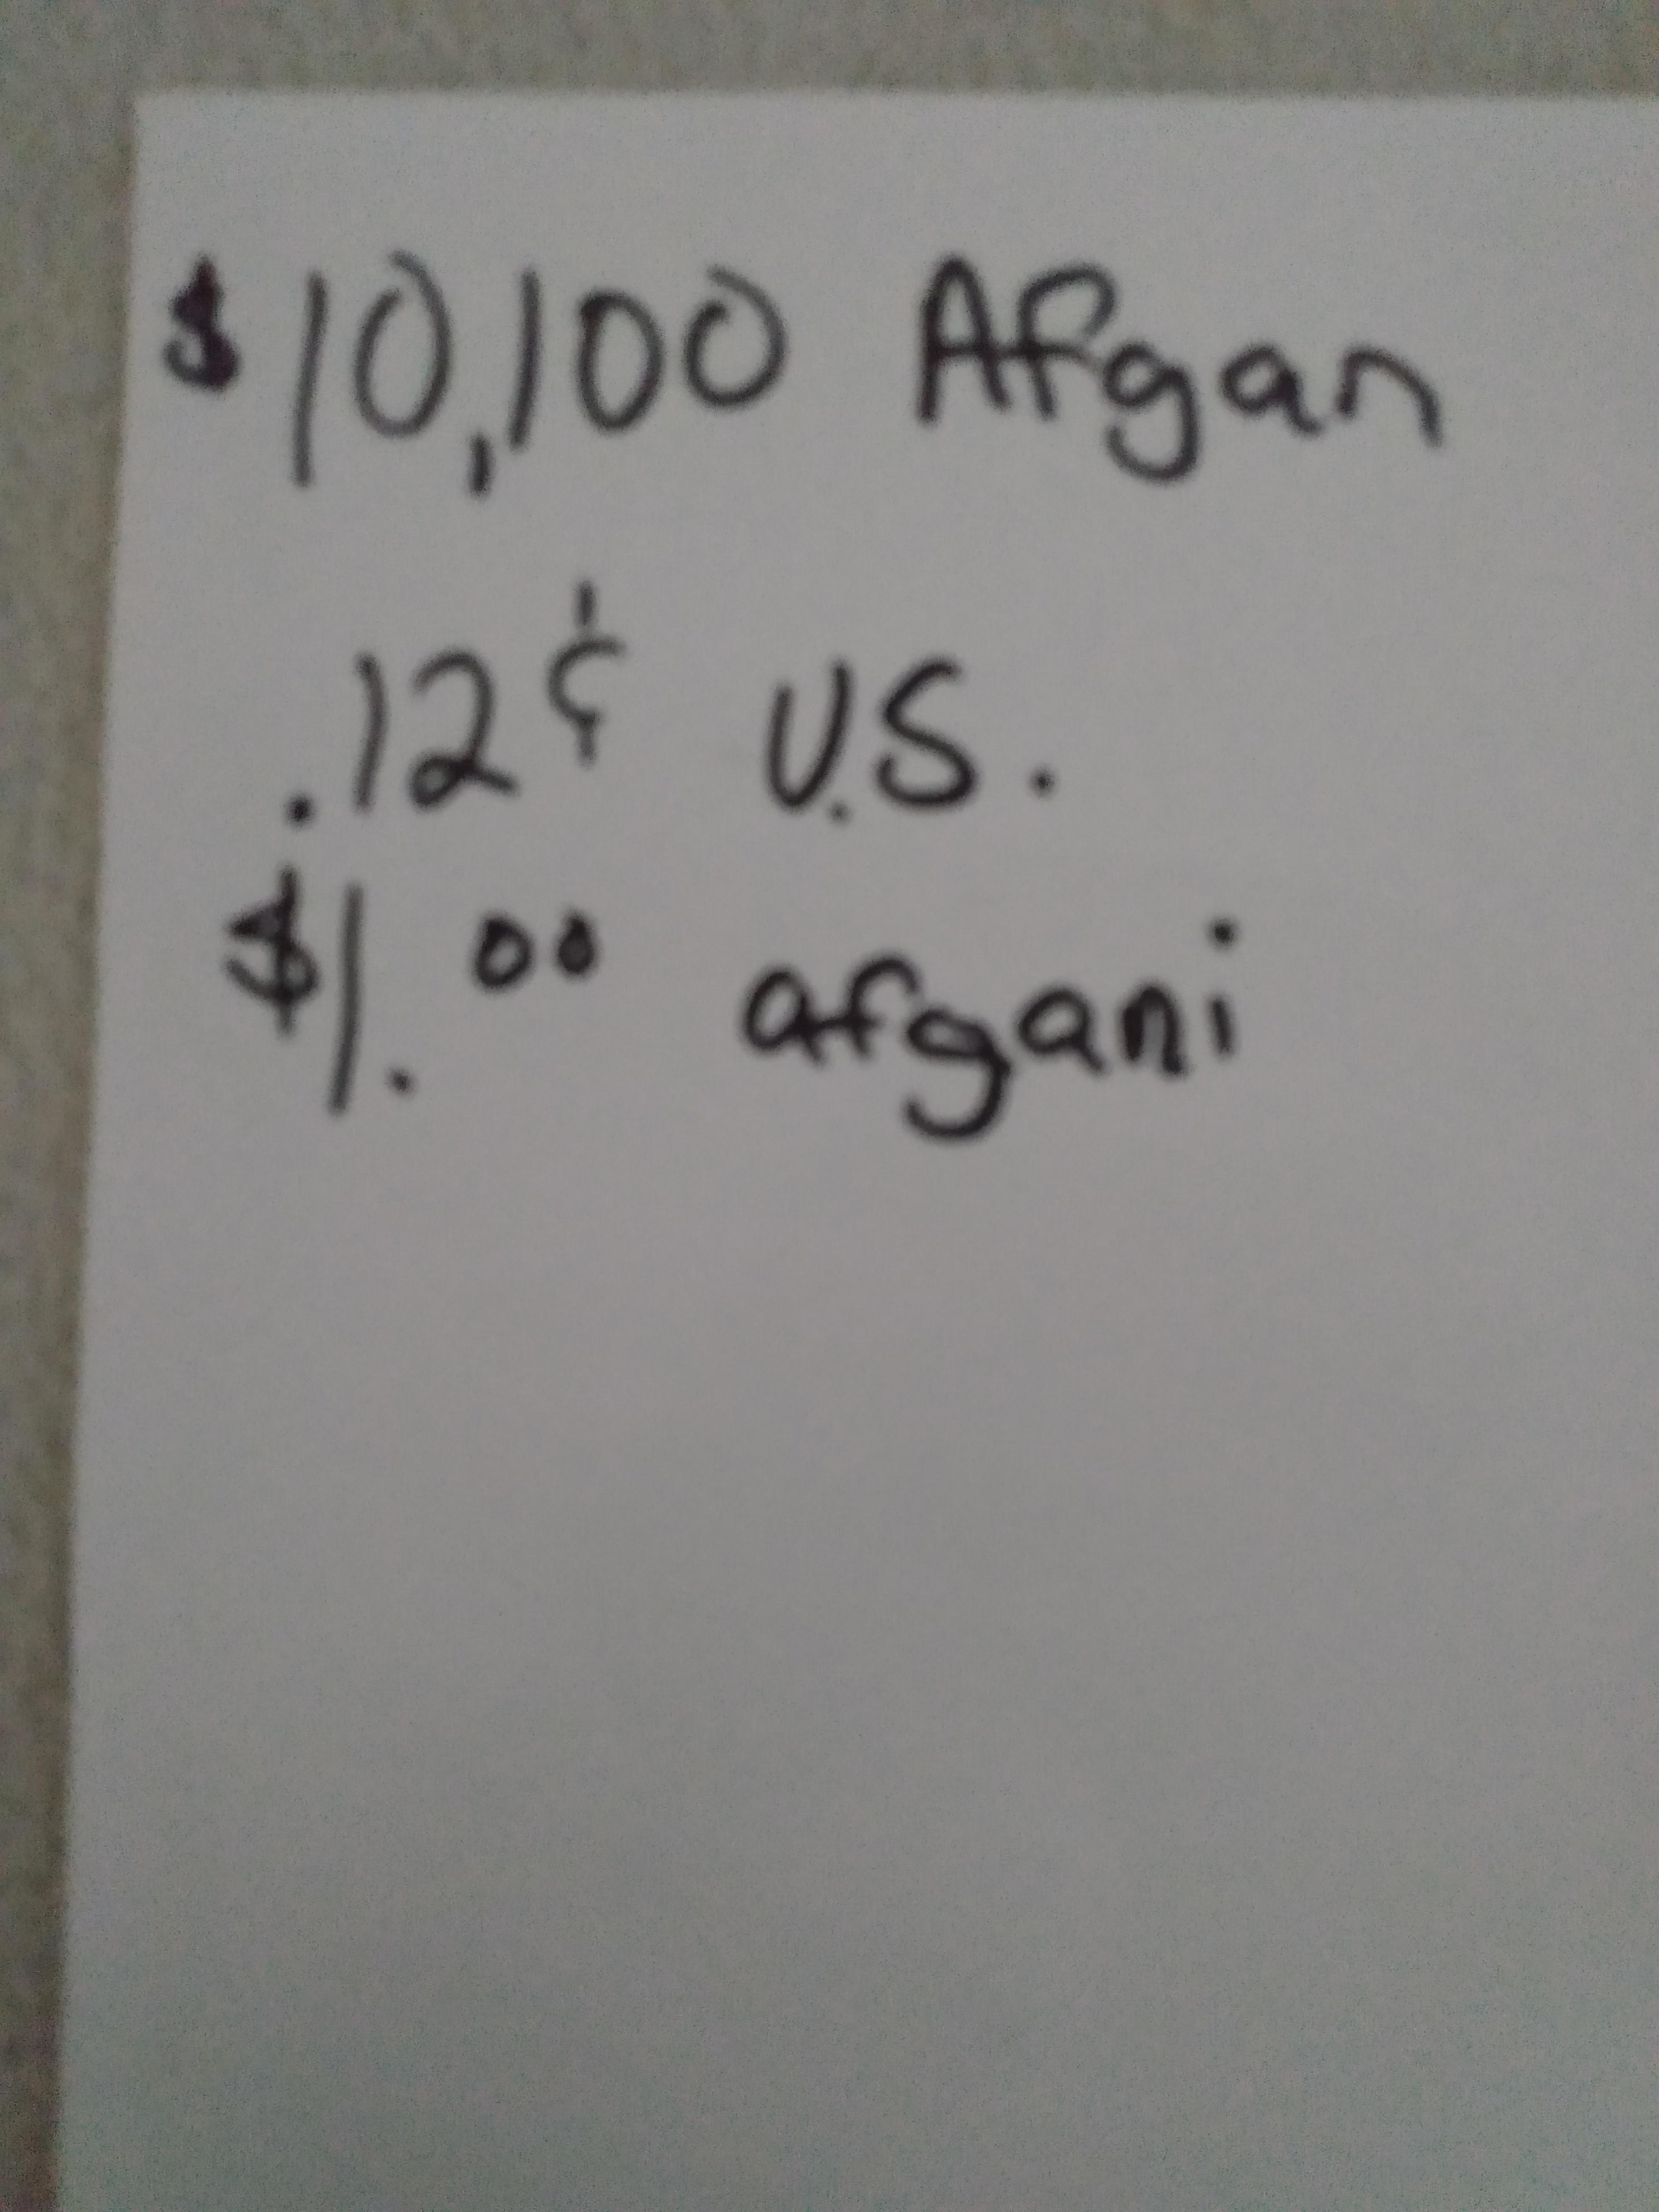 $10,100 Afgan
.12¢ U.S.
$1.00 afgani